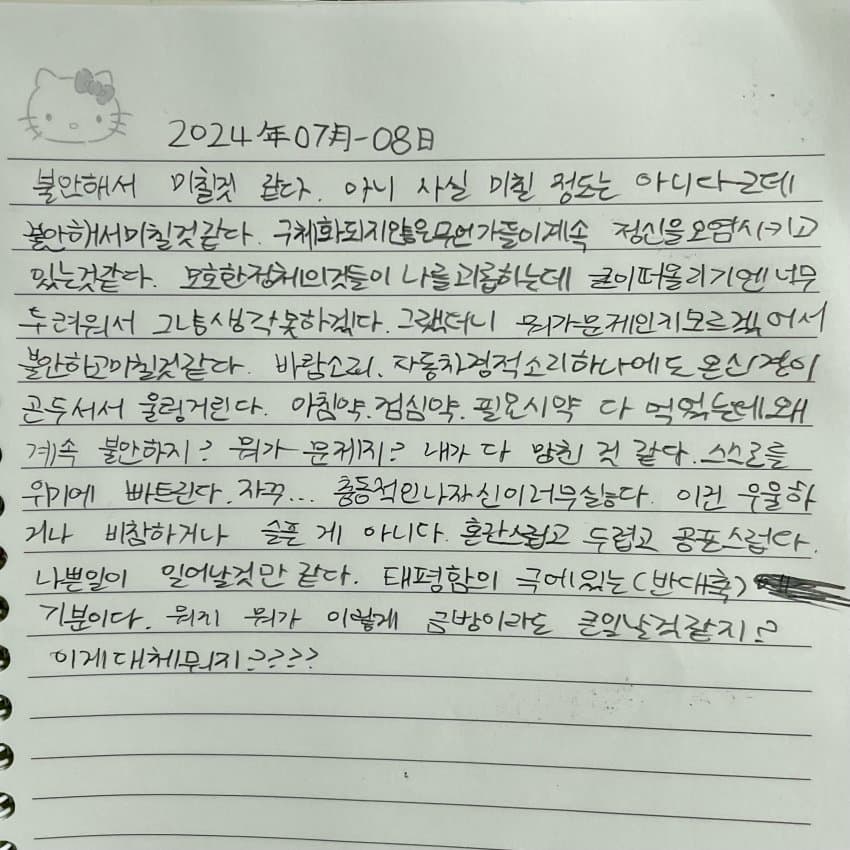 2024年07月-08日
불안해서 미칠것 같다. 아니 사실 미칠 정도는 아니다근데
불안해서미칠것같다. 구체화되지않은무언가들이계속 정신을오염시키고
있는것같다. 모호한정체의것들이 나를괴롭히는데 글이떠올리기엔너무
두려워서 그냥생각못하겠다. 그랬더니 뭐가문제인지모르겠어서
불안하고미칠것같다. 바람소리, 자동차경적소리하나에도 온신경이
곤두서서 울렁거린다. 아침약.점심약.필요시약 다 먹었는데왜
계속 불안하지? 뭐가 문제지? 내가 다 망친 것 같다. 스스로를
위기에 빠트린다. 자꾸... 충동적인나자신이너무싫다. 이건 우울하
거나 비참하거나 슬픈 게 아니다. 혼란스럽고 두렵고 공포스럽다.
나쁜일이 일어날것만 같다. 태평함의 극에있는(반대축)
기분이다. 뭐지 뭐가 이렇게 금방이라도 큰일날것같지!?
이게대체뭐지????